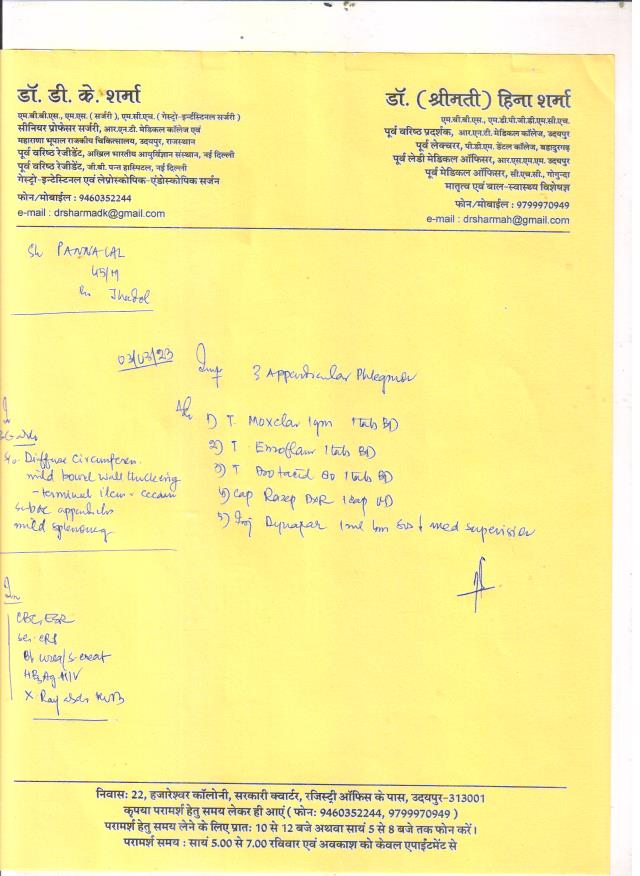 डॉ. डी. के. शर्मा
एम.बी.बी.एस., एम.एस. ( सर्जरी ), एम.सी.एच. ( गेस्ट्रो-इन्टेंस्टिनल सर्जरी )
सीनियर प्रोफेसर सर्जरी, आर.एन.टी. मेडिकल कॉलेज एवं
महाराणा भूपाल राजकीय चिकित्सालय, उदयपुर, राजस्थान
पूर्व वरिष्ठ रेजीडेंट, अखिल भारतीय आयुर्विज्ञान संस्थान, नई दिल्ली
पूर्व वरिष्ठ रेजीडेंट, जी.बी. पन्त हास्पिटल, नई दिल्ली
गेस्ट्रो-इन्टेस्टिनल एवं लेप्रोस्कोपिक-एंडोस्कोपिक सर्जन
फोन/मोबाईल : 9460352244
e-mail : drsharmadk@gmail.com
डॉ. (श्रीमती) हिना शर्मा
एम.बी.बी.एस., एम.डी.पी.जी.डी.एम.सी.एच.
पूर्व वरिष्ठ प्रदर्शक, आर.एन.टी. मेडिकल कॉलेज, उदयपुर
पूर्व लेक्चरर, पी.डी.एम. डेंटल कॉलेज, बहादुरगढ़
पूर्व लेडी मेडिकल ऑफिसर, आर.एस.एम.एम. उदयपुर
पूर्व मेडिकल ऑफिसर, सी.एच.सी., गोगुन्दा
मातृत्व एवं बाल-स्वास्थ्य विशेषज्ञ
फोन/मोबाईल : 9799970949
e-mail : drsharmah@gmail.com
Sh PANNALAL
45/M
Jhadol
03/03/23
Appendicular Phlegmon
1) T. Moxclar 1gm 1tab BD
2) T Enzoflam 1tab BD
3) T 1tab BD
4) Cap Razep DXR 1cap OD
5) Inj Dynapar 1ml Im SOS + med supervision
Diffuse circumferen.
mild bowel wall thickening
- terminal ileum + cecum
mild splenomeg
CBC, ESR
Ser. CRP
Bl urea/S. creat
HBsAg HIV
X Ray KUB
निवास: 22, हजारेश्वर कॉलोनी, सरकारी क्वार्टर, रजिस्ट्री ऑफिस के पास, उदयपुर-313001
कृपया परामर्श हेतु समय लेकर ही आएं ( फोन: 9460352244, 9799970949 )
परामर्श हेतु समय लेने के लिए प्रात: 10 से 12 बजे अथवा सायं 5 से 8 बजे तक फोन करें।
परामर्श समय : सायं 5.00 से 7.00 रविवार एवं अवकाश को केवल एपाईंटमेंट से